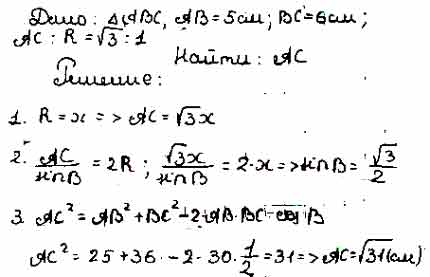 Дано: ΔABC, AB = 5см; BC = 6см;
AC : R = √3 : 1
Найти: AC
Решение:
1. R = x => AC = √3x
2. AC/sinB = 2R; √3x/sinB = 2·x => sinB = √3/2
3. AC² = AB² + BC² - 2·AB·BC·cosB
AC² = 25 + 36 - 2·30·1/2 = 31 => AC = √31 (см)